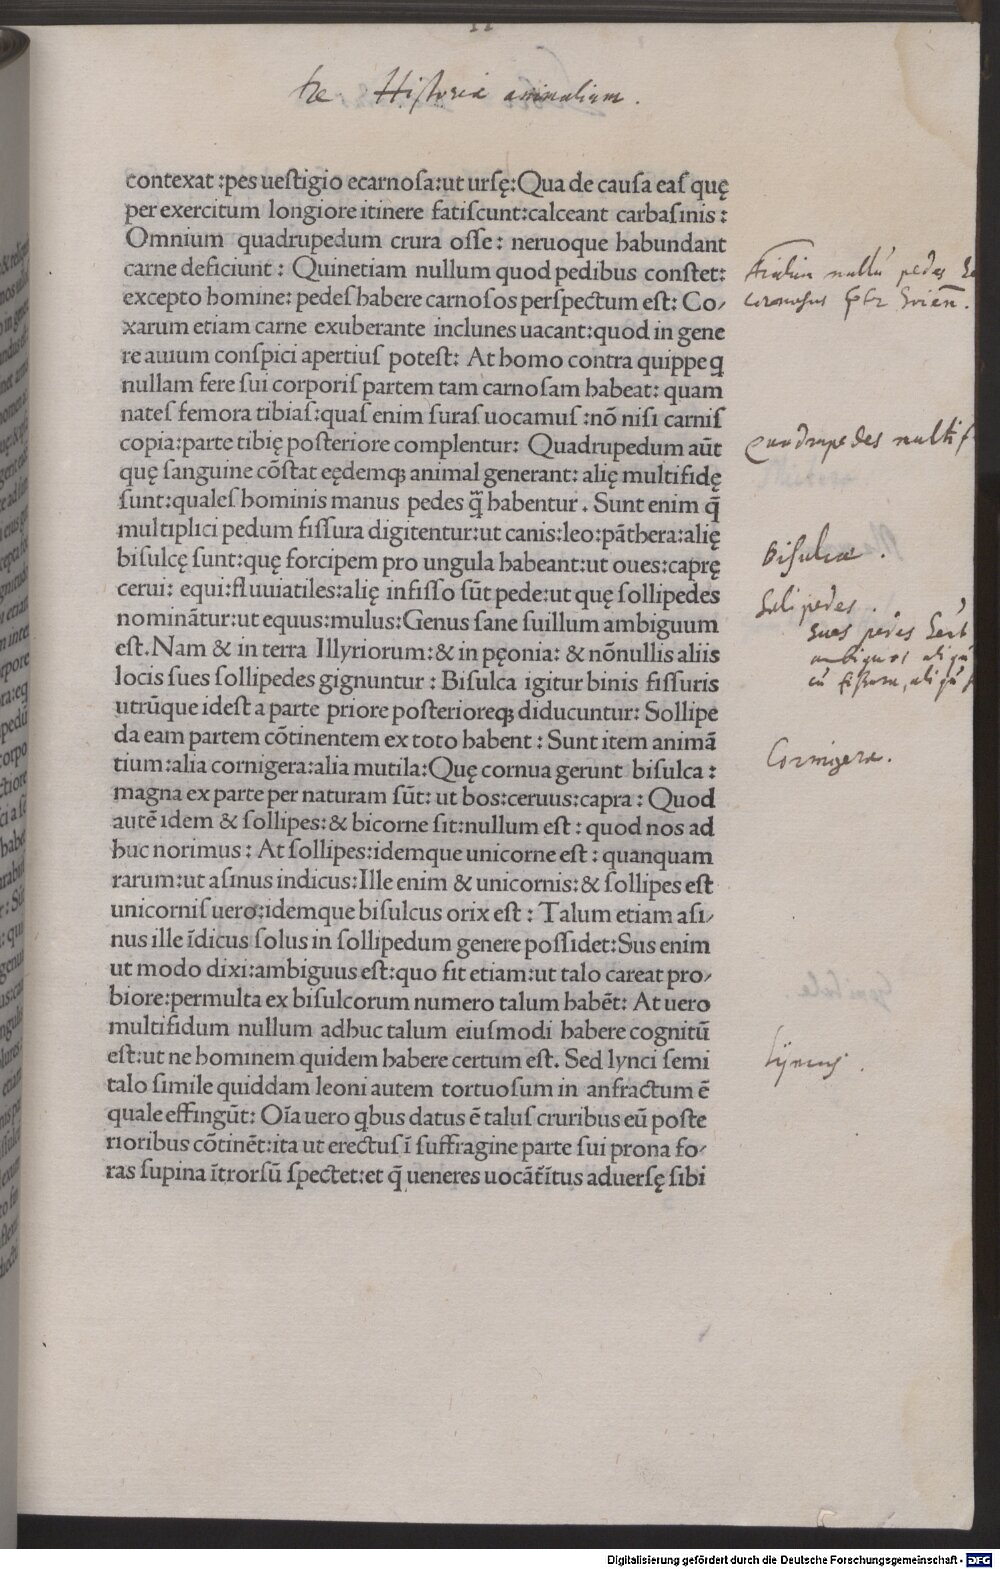 de Historia animalium.
contexat :pes uestigio ecarnosa:ut ursę:Qua de causa eas quę
per exercitum longiore itinere fatiscunt:calceant carbasinis :
Omnium quadrupedum crura osse : neruoque habundant
carne deficiunt : Quinetiam nullum quod pedibus constet:
excepto homine: pedes habere carnosos perspectum est: Co/
xarum etiam carne exuberante inclunes uacant:quod in gene
re auium conspici apertius potest: At homo contra quippe q
nullam fere sui corporis partem tam carnosam habeat: quam
nates femora tibias:quas enim suras uocamus :nō nisi carnis
copia:parte tibię posteriore complentur: Quadrupedum aūt
quę sanguine cōstat eędemq; animal generant: alię multifidę
sunt:quales hominis manus pedes q̄ habentur . Sunt enim q̄
multiplici pedum fissura digitentur:ut canis:leo:pāthera:alię
bisulcę sunt:quę forcipem pro ungula habeant:ut oues:caprę
cerui: equi:fluuiatiles:alię infisso sūt pede:ut quę sollipedes
nominātur:ut equus:mulus:Genus sane suillum ambiguum
est.Nam & in terra Illyriorum:& in pęonia: & nōnullis aliis
locis sues sollipedes gignuntur : Bisulca igitur binis fissuris
utrūque idest a parte priore posterioreq; diducuntur: Sollipe
da eam partem cōtinentem ex toto habent : Sunt item animā
tium:alia cornigera:alia mutila:Quę cornua gerunt bisulca :
magna ex parte per naturam sūt: ut bos:ceruus:capra : Quod
autē idem & sollipes:& bicorne sit:nullum est : quod nos ad
huc norimus : At sollipes:idemque unicorne est : quanquam
rarum:ut asinus indicus:Ille enim & unicornis:& sollipes est
unicornis uero:idemque bisulcus orix est : Talum etiam asi/
nus ille īdicus solus in sollipedum genere possidet:Sus enim
ut modo dixi:ambiguus est:quo fit etiam:ut talo careat pro/
biore:permulta ex bisulcorum numero talum habēt: At uero
multifidum nullum adhuc talum eiusmodi habere cognitū
est:ut ne hominem quidem habere certum est. Sed lynci semi
talo simile quiddam leoni autem tortuosum in anfractum ē
quale effingūt: Oīa uero qbus datus ē talus cruribus eū poste
rioribus cōtinēt:ita ut erectus ī suffragine parte sui prona fo/
ras supina ītrorsū spectet:et q̄ ueneres uocāt ītus aduersę sibi
nullū pedes
carnosus
Quadrupedes multif
Bisulcæ .
Solipedes .
Sues pedes
ambiguos
Cornigera.
Lyncus .
Digitalisierung gefördert durch die Deutsche Forschungsgemeinschaft - DFG